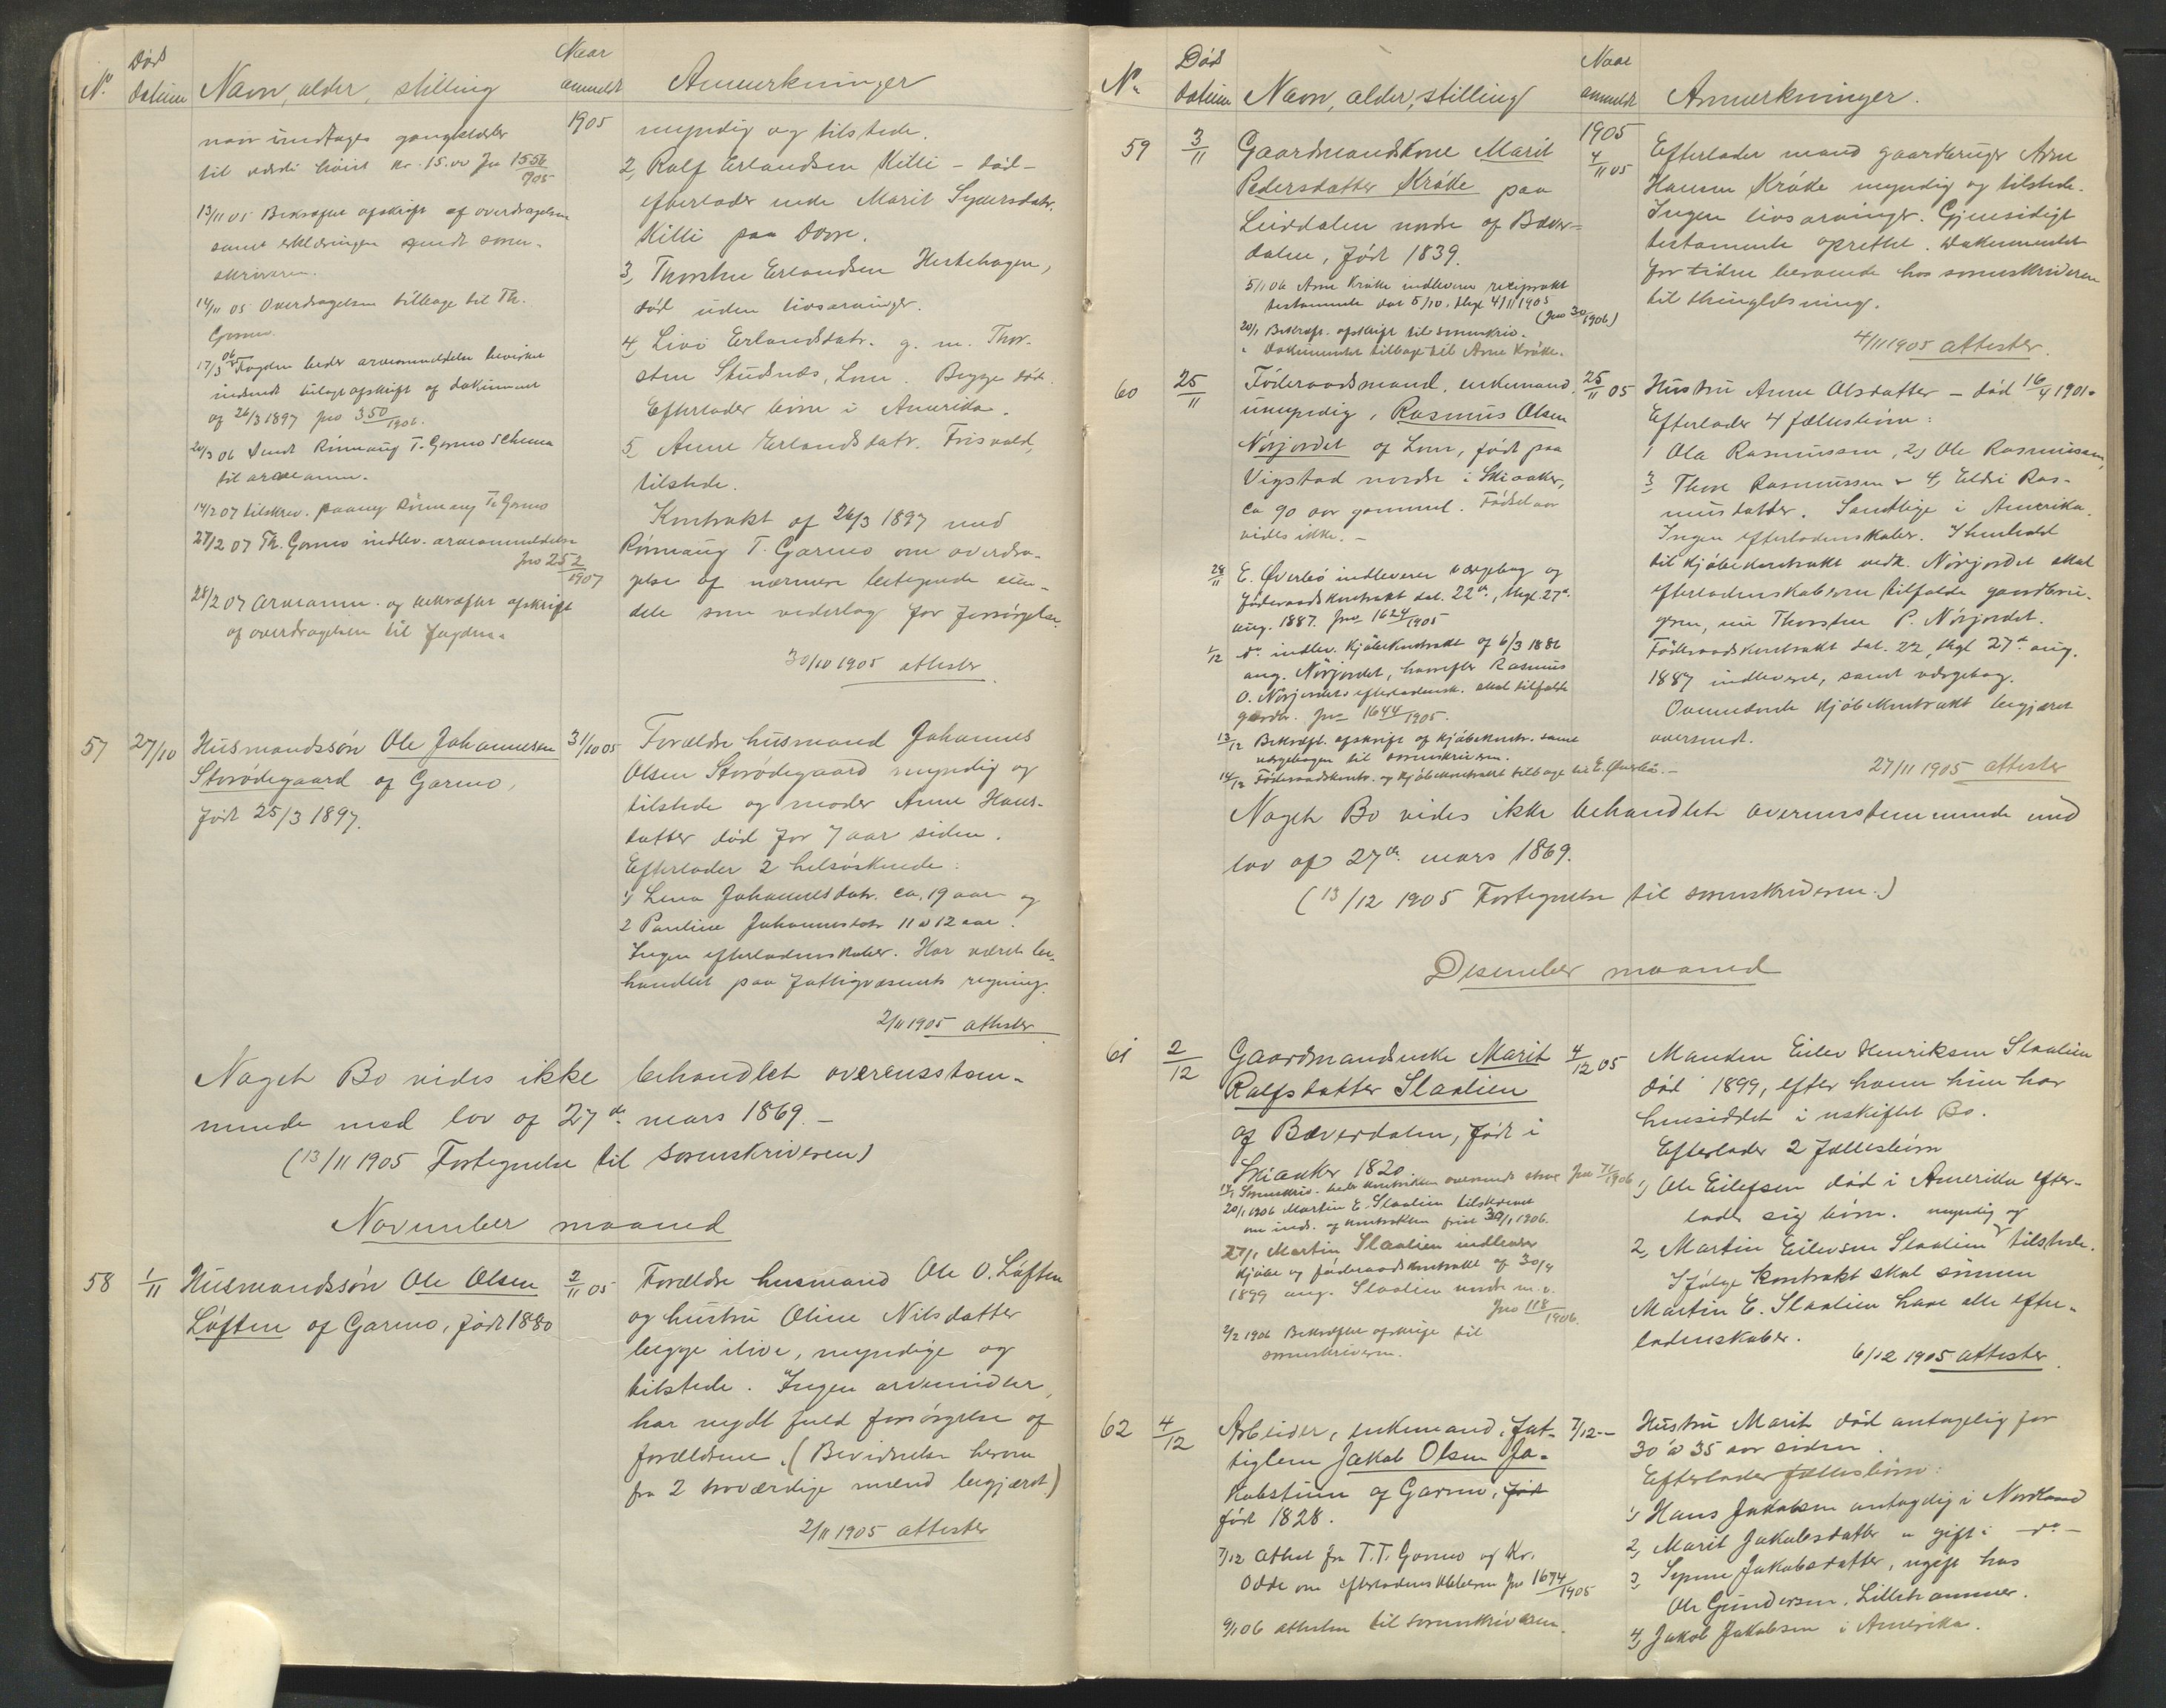 No. Død datum Navn, alder, stilling Naar anmeldt Anmerkninger
naar undtages gangklæder
til værdi høist kr. 15.00 Jno 1556/905
13/11 05 Bekræftet afskrift af overdragelsen
samt erklæringen sendt soren-
skriveren.
14/11 05 Overdragelsen tilbage til Th.
Garmo.
17/3 06 Fogden beder arveanmeldelse bevirket
indsendt bilagt afskrift af dokument
og 26/3 1897 jno 350/1906.
20/3 06 Sendt Rønnaug T. Garmo schema
til arveanm.
14/2 07 tilskrev. paany Rønnaug T. Garmo
27/2 07 Th. Garmo indlev. arveanmeldelse
jno 252/1907
28/2 07 arveanm. og bekræftet afskrift
af overdragelsen til fogden.
1905
myndig og tilstede.
2, Rolf Erlandsen Killi - død -
efterlader enke Marit Syversdatr.
Killi paa Dovre.
3, Thorsten Erlandsen Hestehagen,
død uden livsarvinger.
4, Livi Erlandsdatr. g. m. Thor-
sten Studnæs, Lom. Begge død.
Efterlader børn i Amerika.
5, Anne Erlandsdatr. Frisvold,
tilstede.
Kontrakt af 26/3 1897 med
Rønnaug T. Garmo om overdra-
gelse af nærmere betegnede eien-
dele som vederlag for forsørgelse.
30/10 1905 attester
57 27/10 Husmandssøn Ole Johannesen
Storødegaard af Garmo,
født 25/3 1897.
31/10 05
Forældre husmand Johannes
Olsen Storødegaard myndig og
tilstede og moder Anne Hans-
datter død for 7 aar siden.
Efterlader 2 helsøskende:
1, Lena Johannesdatr. ca. 19 aar og
2 Pauline Johannesdatr 11 à 12 aar.
Ingen efterladenskaber. Har været be-
handlet paa fattigvæsenets regning.
2/11 1905 attester
Noget Bo vides ikke behandlet overensstem-
mende med lov af 27de mars 1869. -
(13/11 1905 Fortegnelse til sorenskriveren)
November maaned
58 1/11 Husmandssøn Ole Olsen
Løften af Garmo, født 1880
2/11 05
Forældre husmand Ole O. Løften
og hustru Oline Nilsdatter
begge ilive, myndige og
tilstede. Ingen arvemidler,
har nydt fuld forsørgelse af
forældrene. (Bevidnelse herom
fra 2 troværdige mænd begjæret.)
2/11 1905 attester
No. Død datum Navn, alder, stilling Naar anmeldt Anmerkninger.
59 3/11 Gaardmandskone Marit
Pedersdatter Kråke paa
Leirdalen nordre af Bæver-
dalen, født 1839.
5/1 06 Arne Kråke indleverer reciprokt
testamente dat 5/10, thgl 4/11 1905
(jno 30/1906)
20/1 Bekræft. afskrift til sorenskriv.
" Dokumentet tilbage til Arne Kråke.
1905
4/11 05
Efterlader mand gaardbruger Arne
Hansen Kråke myndig og tilstede.
Ingen livsarvinger. Gjensidigt
testamente oprettet. Dokumentet
for tiden beroende hos sorenskriveren
til thinglæsning.
4/11 1905 attester.
60 25/11 Føderaadsmand, enkemand,
umyndig, Rasmus Olsen
Nørjordet af Lom, født paa
Vigstad nordre i Skiaaker,
ca 90 aar gammel. Fødselaar
vides ikke. -
28/11 E. Øverbø indleverer værgebog og
føderaadskontrakt dat. 22de, thgl. 27de
aug. 1887. Jno 1624/1905
1/12 do. indlev. kjøbekontrakt af 6/3 1886
ang. Nørjordet, hvorefter Rasmus
O. Nørjordets efterladensk. skal tilfalde
gaarden. jno 1644/1905.
13/12 Bekræft. afskrift af kjøbekontr. samt
værgebogen til sorenskriveren.
14/12 Føderaadskontr. og kjøbekontrakt tilbage til E. Øverbø. -
25/11 05
Hustru Anne Olsdatter - død 16/4 1901.
Efterlader 4 fællesbørn:
1 Ola Rasmussen, 2, Ole Rasmussen,
3 Thore Rasmussen & 4, Eldri Ras-
musdatter. Samtlige i Amerika.
Ingen efterladenskaber. I henhold
til kjøbekontrakt vedk. Nørjordet skal
efterladenskaberne tilfalde gaardbru-
geren, nu Thorsten P. Nørjordet.
Føderaadskontrakt dat. 22, thgl 27de aug.
1887 indleveret, samt værgebog.
Ovennævnte kjøbekontrakt begjæret
oversendt.
27/11 1905 attester
Noget Bo vides ikke behandlet overensstemmende med
lov af 27de mars 1869.
(13/12 1905 Fortegnelse til sorenskriveren.)
Desember maaned
61 2/12 Gaardmandsenke Marit
Rolfsdatter Slaalien
af Bæverdalen, født i
Skiaaker 1820
17/1 Sorenskriv. beder kontrakten oversendt jno 71/1906
20/1 1906 Martin E. Slaalien tilskrevet
om inds. af kontrakten frist 30/1 1906.
27/1 Martin Slaalien indleverer
kjøbe og føderaadskontrakt af 30/4
1899 ang. Slaalien nordre m. v.
jno 118/1906.
2/2 1906 Bekræftet afskrift til
sorenskriveren.
4/12 05
Manden Eilev Henriksen Slaalien
død 1899, efter hvem hun har
hensiddet i uskiftet Bo.
Efterlader 2 fællesbørn
1, Ole Eilefsen død i Amerika efter-
lader sig børn.
2, Martin Eilevsen Slaalien myndig og tilstede.
Ifølge kontrakt skal sønnen
Martin E. Slaalien have alle efter-
ladenskaber.
6/12 1905 attester.
62 4/12 Arbeider, enkemand, fat-
tiglem Jakob Olsen Ja-
kobstuen af Garmo, født
født 1828.
7/12 Attest fra T. T. Garmo og Kr.
Odde om efterladenskaberne jno 1674/1905
9/1 06 attesten til sorenskriveren.
7/12 -
Hustru Marit død antagelig for
30 à 35 aar siden.
Efterlader fællesbørn:
1, Hans Jakobsen antagelig i Nordland
2, Marit Jakobsdatter " gift i -do-
3, Synne Jakobsdatter, ugift hos
Ole Gundersen, Lillehammer.
4, Jakob Jakobsen i Amerika.